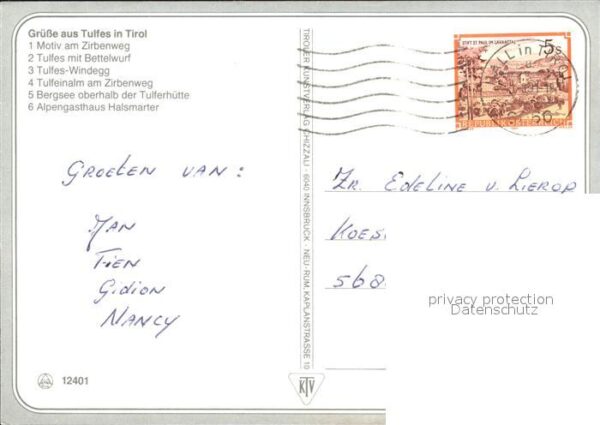 Grüße aus Tulfes in Tirol
1 Motiv am Zirbenweg
2 Tulfes mit Bettelwurf
3 Tulfes-Windegg
4 Tulfeinalm am Zirbenweg
5 Bergsee oberhalb der Tulferhütte
6 Alpengasthaus Halsmarter
GROETEN VAN:
JAN
TIEN
Gidion
NANCY
12401
TIROLER KUNSTVERLAG CHIZZALI · 6040 INNSBRUCK · NEU-RUM, KAPLANSTRASSE 10
KTV
STIFT ST. PAUL IM LAVANTTAL
5 S
REPUBLIK ÖSTERREICH
HALL in
ZR. EDELINE V. LIEROP
KOES
568
privacy protection
Datenschutz